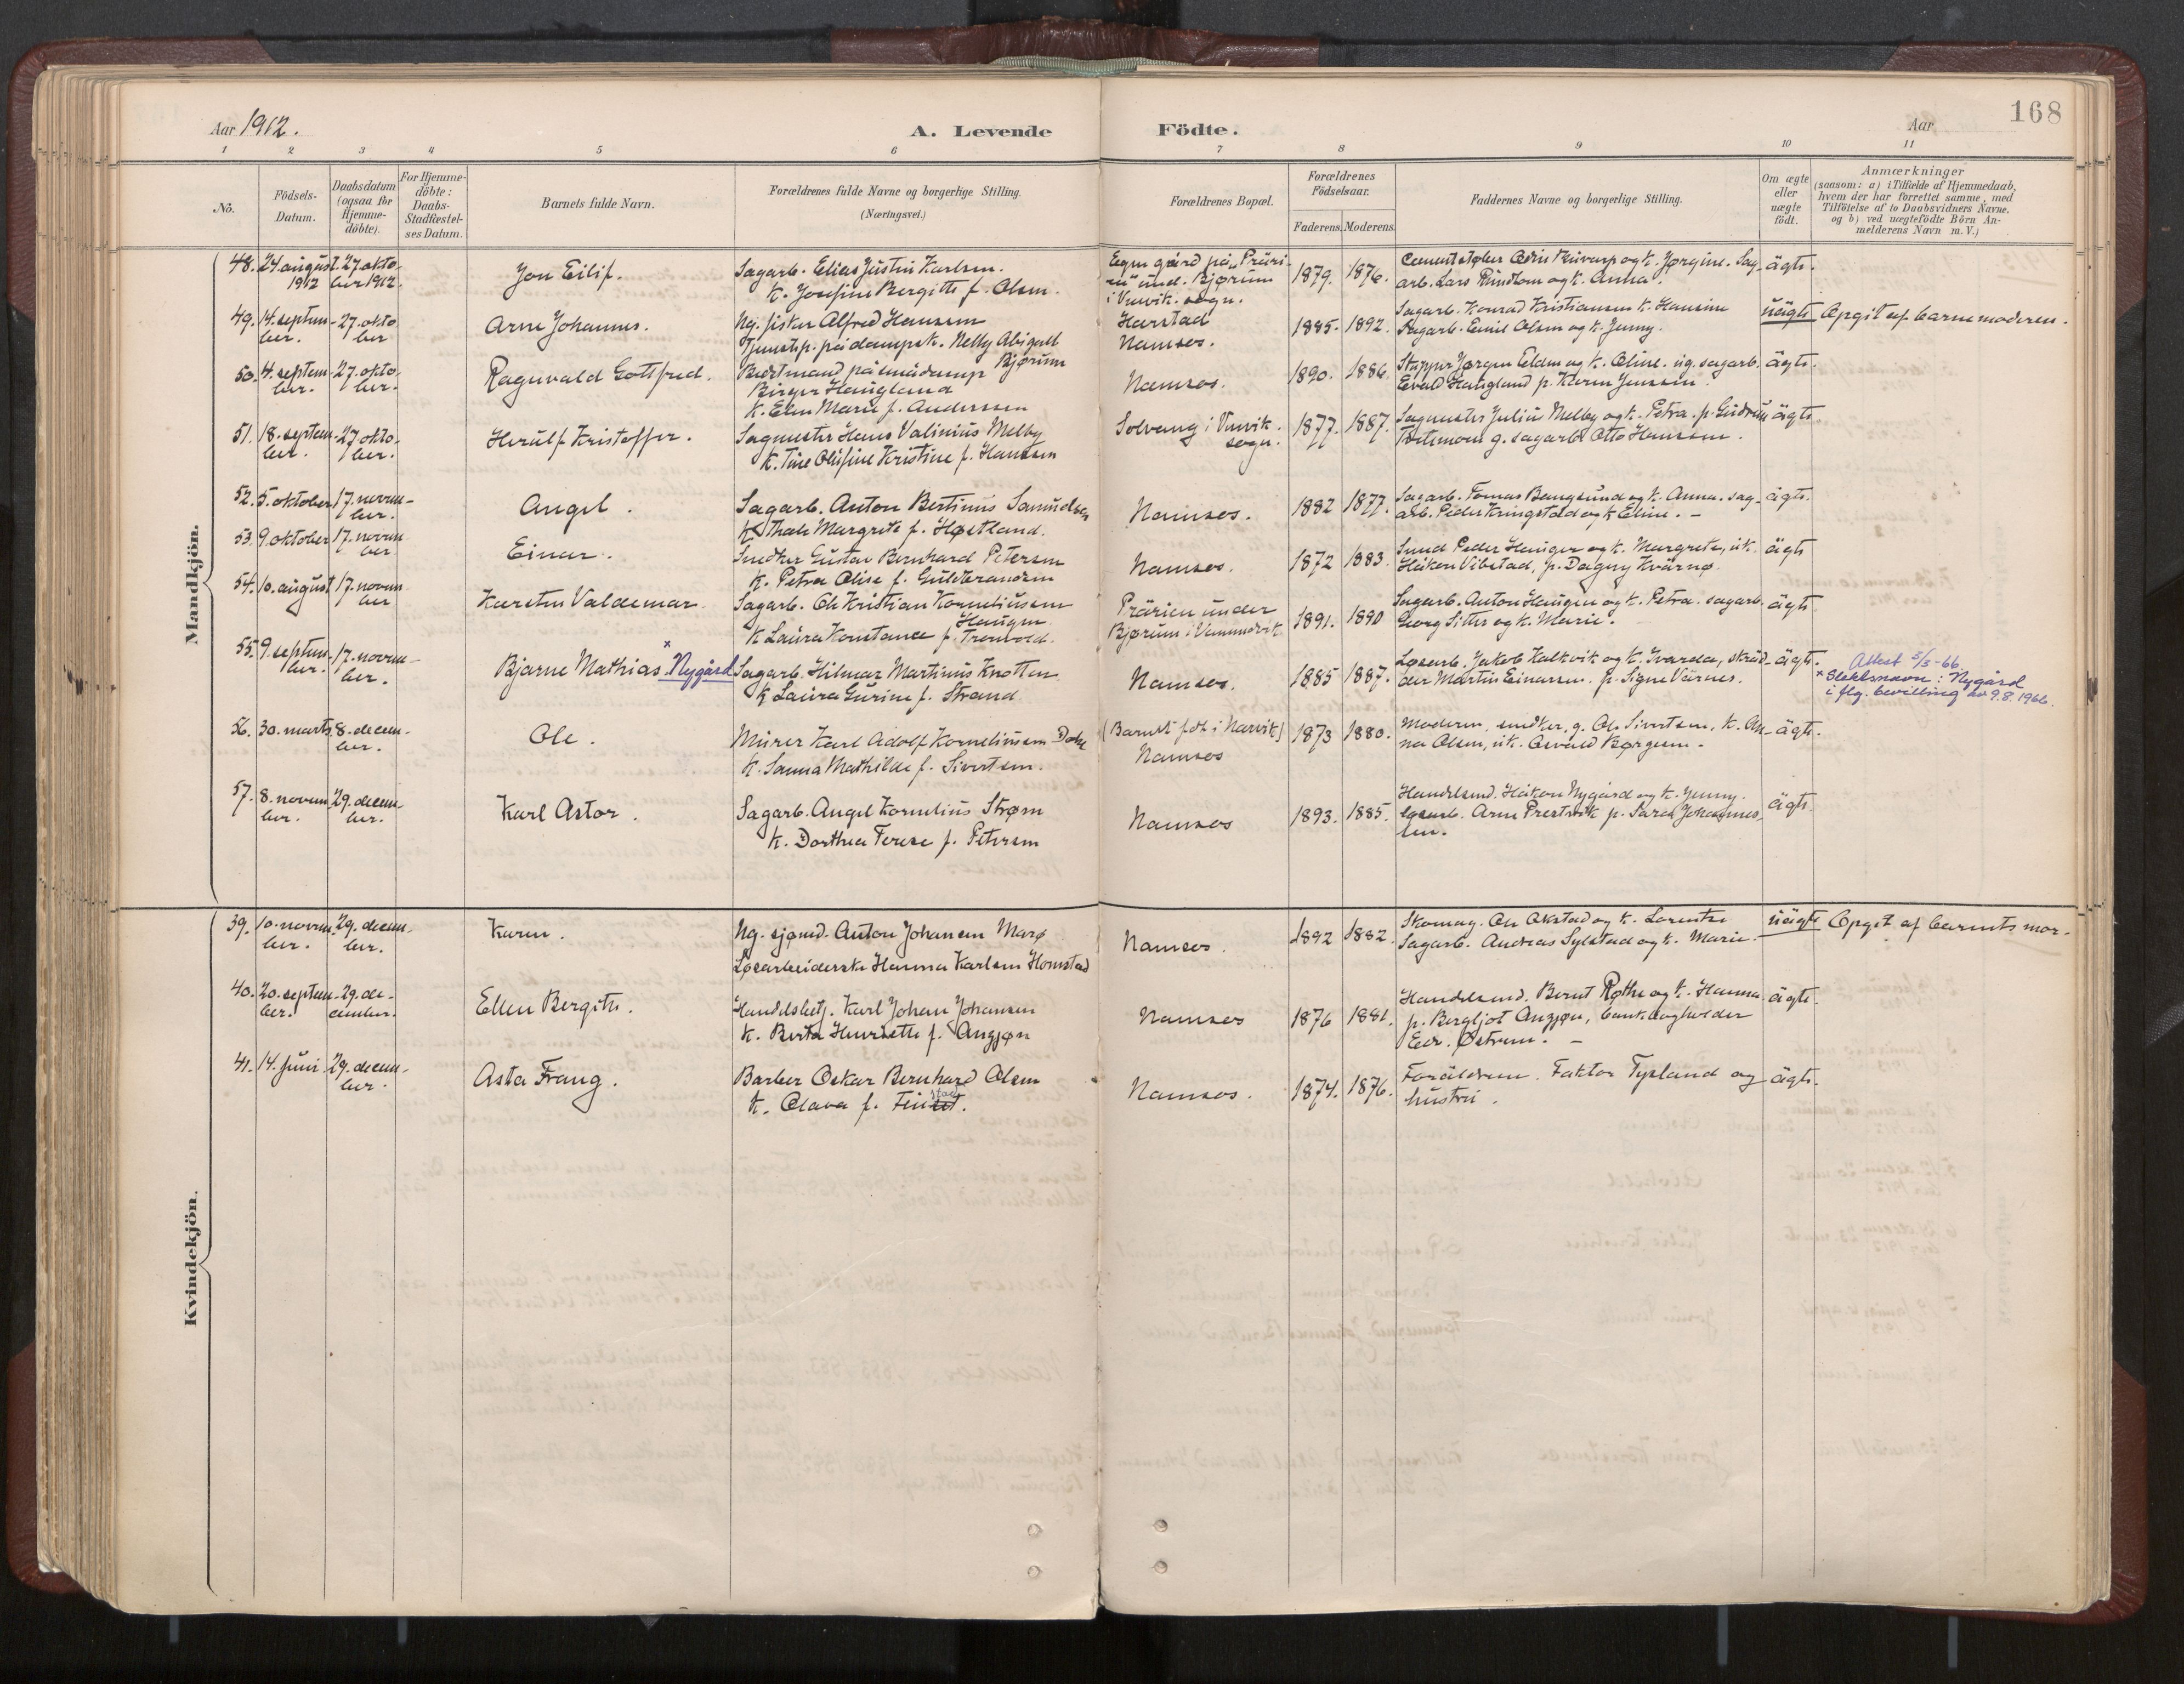 168
Aar 1912.
A. Levende
Födte.
Aar
1 2 3 4 5 6 7 8 9 10 11
No.
Födsels-
Datum.
Daabsdatum
(ogsaa for
Hjemme-
döbte).
For Hjemme-
döbte:
Daabs-
Stadfæstel-
ses Datum.
Barnets fulde Navn.
Forældrenes fulde Navne og borgerlige Stilling.
(Næringsvei.)
Forældrenes Bopæl.
Forældrenes
Födselsaar.
Faderens. Moderens.
Faddernes Navne og borgerlige Stilling.
Om ægte
eller
uægte
födt.
Anmærkninger
(saasom: a) i Tilfælde af Hjemmedaab,
hvem der har forrettet samme, med
Tilföielse af to Daabsvidners Navne,
og b) ved uægtefödte Börn An-
melderens Navn m.V.)
Mandkjön.
48. 24 august 27. okto-
1912 ber 1912.
Jon Eilif.
Sagarb. Elias Justin Karlsen.
K. Josefine Bergitte f. Olsen.
Egen gård på „Präri-
en" und. Bjørum
i Vemvik. sogn.
1879. 1876.
og k. Jørgine. Sag-
arb. Lars og k. Anna.
ägte.
49. 14. septem- 27. okto
ber. ber
Arne Johannes.
Ug. fisker Alfred Hansen
Tjenestep. på dampsk. Nelly Abigael
Bjørum
Harstad
Namsos.
1885. 1892.
Sagarb. Konrad Kristiansen k. Hansine
Sagarb. Emil Olsen og k. Jenny.
uägte Opgit af barnemoderen.
50. 4. septem- 27. okto-
ber. ber.
Ragnvald Gottfred.
Bestmand på
Birger Haugland
K. Elen Marie f. Anderssen
Namsos.
1890. 1886.
Jørgen Eldem og k. Oline. ug. sagarb.
Evald Haugland p. Karen Jenssen.
ägte.
51. 18. septem- 27 okto-
ber. ber.
Herulf Kristoffer.
Sagmester Hans Valinius Melby
K. Tine Olufine Kristine f. Hanssen
Solvang i Vemvik.
sogn.
1877. 1887.
Sagmester Julius Melby og k. Petra. p. Gudrun
g. sagarb. Otto Hanssen.
ägte.
52. 5. oktober 17. novem-
ber.
Angel.
Sagarb. Anton Bertinus Samuelsen
K. Thale Margrete f. Høstland.
Namsos.
1882 1877.
Sagarb. Tomas Bangsund og k. Anna. sag-
arb. Peder Kringstad og k Eline. -
ägte.
53. 9. oktober 17. novem
ber
Einar.
Snedker Gustav Bernhard Petersen
K. Petra Olise f. Guldbrandsen
Namsos.
1872 1883.
Smed Peder Hauger og k. Margrete, uk.
Håkon Vibstad, p. Dagny Kvarnø.
ägte
54. 10. august 17. novem
ber
Karsten Valdemar
Sagarb. Ole Kristian Korneliussen
Haugen
K Laura Konstance f. Trenvold.
Prärien under
Bjørum i Vemundvik
1891. 1890
Sagarb. Anton Haugen og k. Petra. sagarb.
Georg Sitter og k. Marie.
ägte
55. 9. septem- 17. novem-
ber. ber.
Bjarne Mathias × Nygård
Sagarb. Hilmar Martinus Knotten
K Laura Gurine f. Strand
Namsos.
1885 1887.
Løsarb. Jakob Kalkvik og k. Ivarda, skräd-
der Martin Einarsen. p. Signe Värnes.
ägte.
Attest 5/5-66.
× Slektsnavn: Nygård
i flg. bevilling av 9.8.1966.
56. 30. marts 8. decem-
ber.
Ole.
Murer Karl Adolf Korneliussen Dahl
K. Sanna Mathilde f. Sivertsen.
(Barnet født i Narvik)
Namsos
1873 1880.
Moderen, snedker, g. Ole Sivertsen, k. An-
na Olsen, uk. Osvald Børgesen.
ägte.
57. 8. novem- 29. decem-
ber. ber.
Karl Astor.
Sagarb. Angel Kornelius Strøm
K. Dorthea Terese f. Petersen
Namsos
1893. 1885.
Handelsmd. Håkon Nygård og k. Jenny.
Løsarb. Arne Prestvik p. Sara Johannes-
sen.
ägte.
Kvindekjön.
39. 10. novem- 29. decem-
ber. ber.
Karen.
Ug. sjømd. Anton Johansen Marø
Løsarbeiderske Hanna Karlsen Homstad
Namsos.
1892 1882.
Skomag. Ole Akstad og k. Lorentse
Sagarb. Andreas Sylstad og k. Marie.
uägte Opgit af barnets mor.
40. 20. septem- 29. de-
ber. cember.
Ellen Bergith.
Handelsbetj. Karl Johan Johansen
K. Berta Henriette f. Anzjøn
Namsos
1876 1881.
Handelsmd. Bernt Røthe og k. Hanna
p. Bergljot Anzjøn, bankbogholder
Edv. Østrem. -
ägte.
41. 14. juni 29. decem-
ber.
Asta Frang.
Barber Oskar Bernhard Olsen
K. Olava f.
Namsos.
1874. 1876.
Foräldrene. Faktor Typland og
hustru.
ägte.